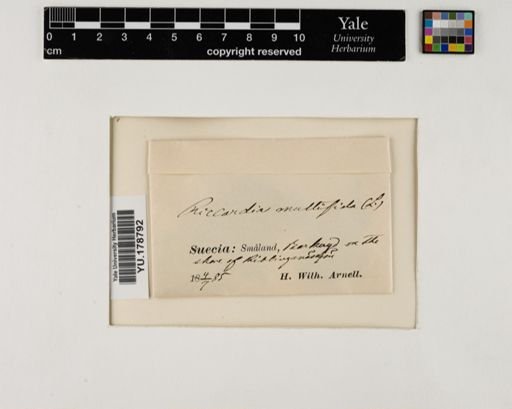 0 1 2 3 4 5 6 7 8 9 10
cm
copyright reserved
Yale
University
Herbarium
Yale University Herbarium
YU.178792
Riccardia multifida (L.)
Suecia: Småland, on the
shore of
18 4/7 85 H. Wilh. Arnell.